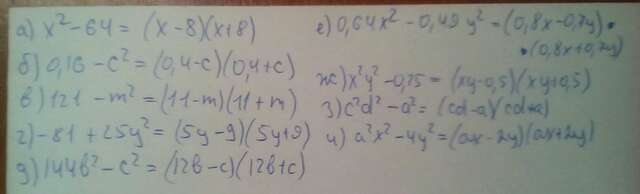 а) x² - 64 = (x-8)(x+8)
б) 0,16 - c² = (0,4-c)(0,4+c)
в) 121 - m² = (11-m)(11+m)
г) -81 + 25y² = (5y-9)(5y+9)
д) 144b² - c² = (12b-c)(12b+c)
е) 0,64x² - 0,49y² = (0,8x-0,7y)•
•(0,8x+0,7y)
ж) x²y² - 0,25 = (xy-0,5)(xy+0,5)
з) c²d² - a² = (cd-a)(cd+a)
и) a²x² - 4y² = (ax-2y)(ax+2y)